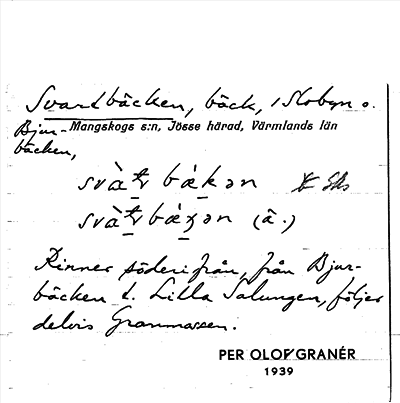 Svartbäcken, bäck, i Slobyn o.
Bjur-
Mangskogs s:n, Jösse härad, Värmlands län
bäcken,
Rinner söderifrån, från Bjur-
bäcken t. Lilla Salungen, följer
delvis Granmossen.
PER OLOF GRANÉR
1939